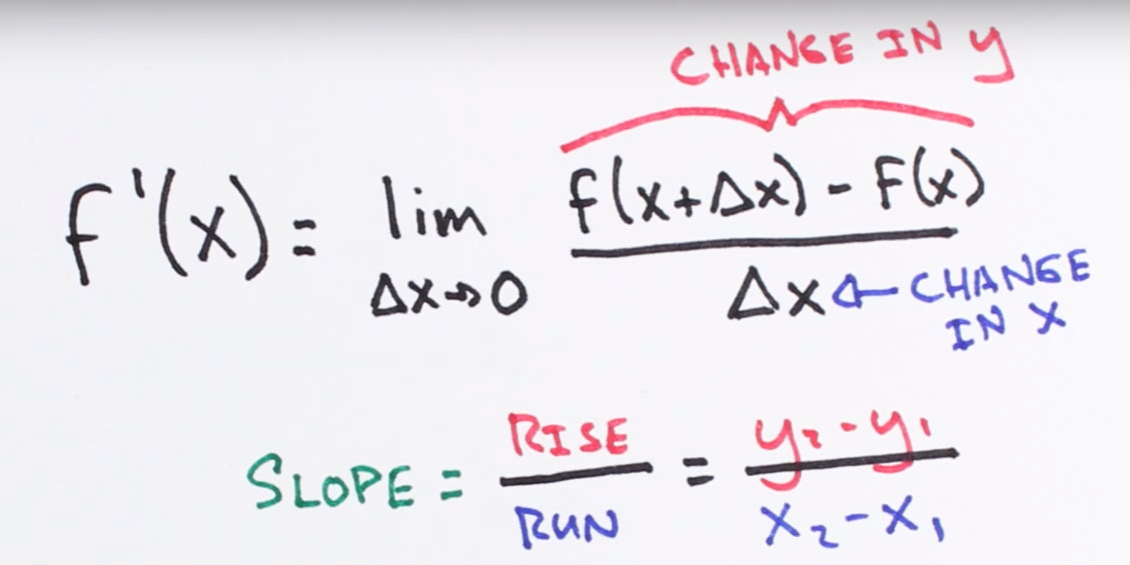 CHANGE IN y
f'(x) = lim Δx→0 f(x+Δx) - F(x) / Δx ← CHANGE IN X
SLOPE = RISE / RUN = y₂ - y₁ / x₂ - x₁